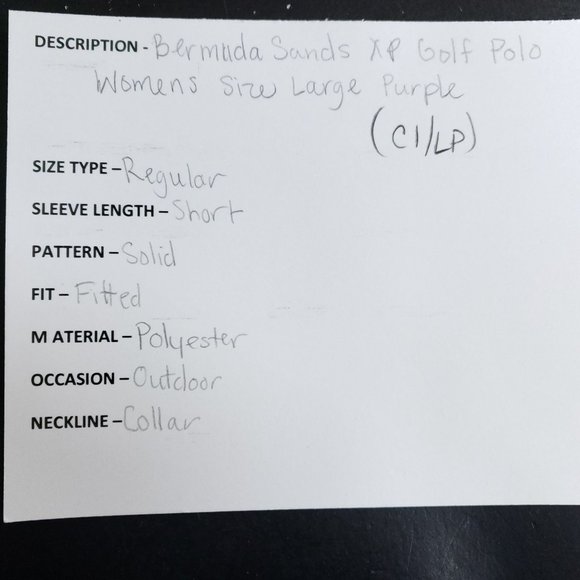 DESCRIPTION - Bermuda Sands XP Golf Polo
Womens Size Large Purple
(C1/LP)
SIZE TYPE – Regular
SLEEVE LENGTH – Short
PATTERN – Solid
FIT – Fitted
M ATERIAL – Polyester
OCCASION – Outdoor
NECKLINE – Collar